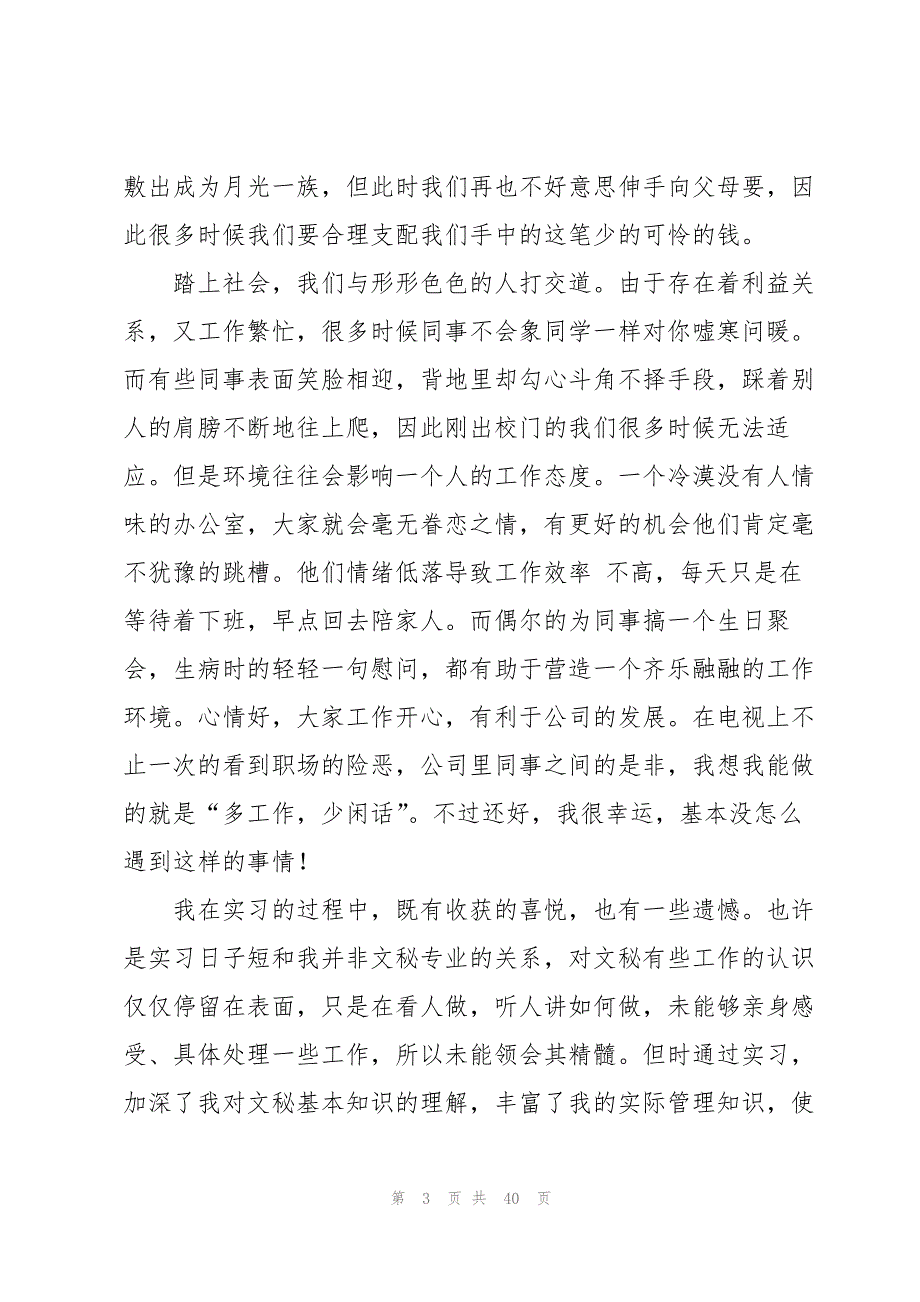 敷出成为月光一族，但此时我们再也不好意思伸手向父母要，因
此很多时候我们要合理支配我们手中的这笔少的可怜的钱。
踏上社会，我们与形形色色的人打交道。由于存在着利益关
系，又工作繁忙，很多时候同事不会象同学一样对你嘘寒问暖。
而有些同事表面笑脸相迎，背地里却勾心斗角不择手段，踩着别
人的肩膀不断地往上爬，因此刚出校门的我们很多时候无法适
应。但是环境往往会影响一个人的工作态度。一个冷漠没有人情
味的办公室，大家就会毫无眷恋之情，有更好的机会他们肯定毫
不犹豫的跳槽。他们情绪低落导致工作效率 不高，每天只是在
等待着下班，早点回去陪家人。而偶尔的为同事搞一个生日聚
会，生病时的轻轻一句慰问，都有助于营造一个齐乐融融的工作
环境。心情好，大家工作开心，有利于公司的发展。在电视上不
止一次的看到职场的险恶，公司里同事之间的是非，我想我能做
的就是“多工作，少闲话”。不过还好，我很幸运，基本没怎么
遇到这样的事情！
我在实习的过程中，既有收获的喜悦，也有一些遗憾。也许
是实习日子短和我并非文秘专业的关系，对文秘有些工作的认识
仅仅停留在表面，只是在看人做，听人讲如何做，未能够亲身感
受、具体处理一些工作，所以未能领会其精髓。但时通过实习，
加深了我对文秘基本知识的理解，丰富了我的实际管理知识，使
第 3 页 共 40 页